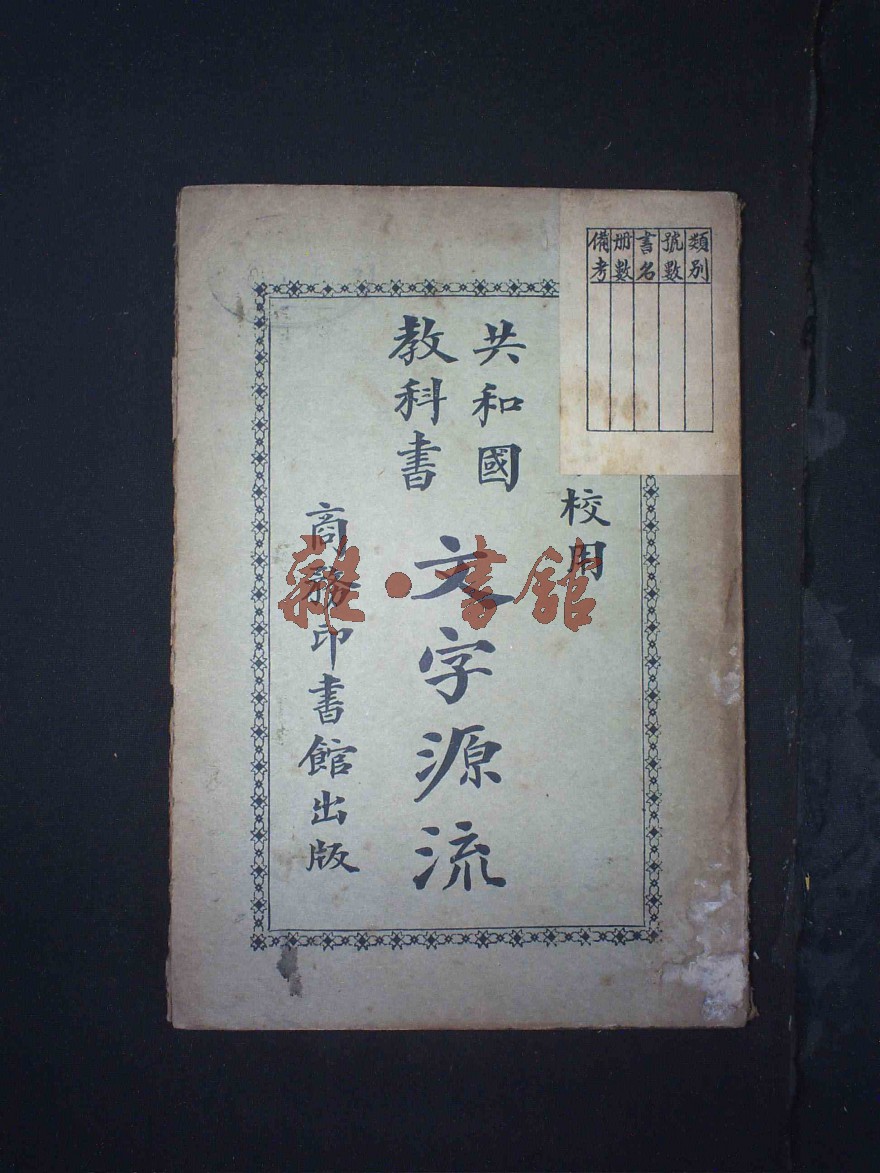 類別
號數
書名
册數
備考
校用
共和國
教科書
文字源流
商務印書館出版
雜·書館